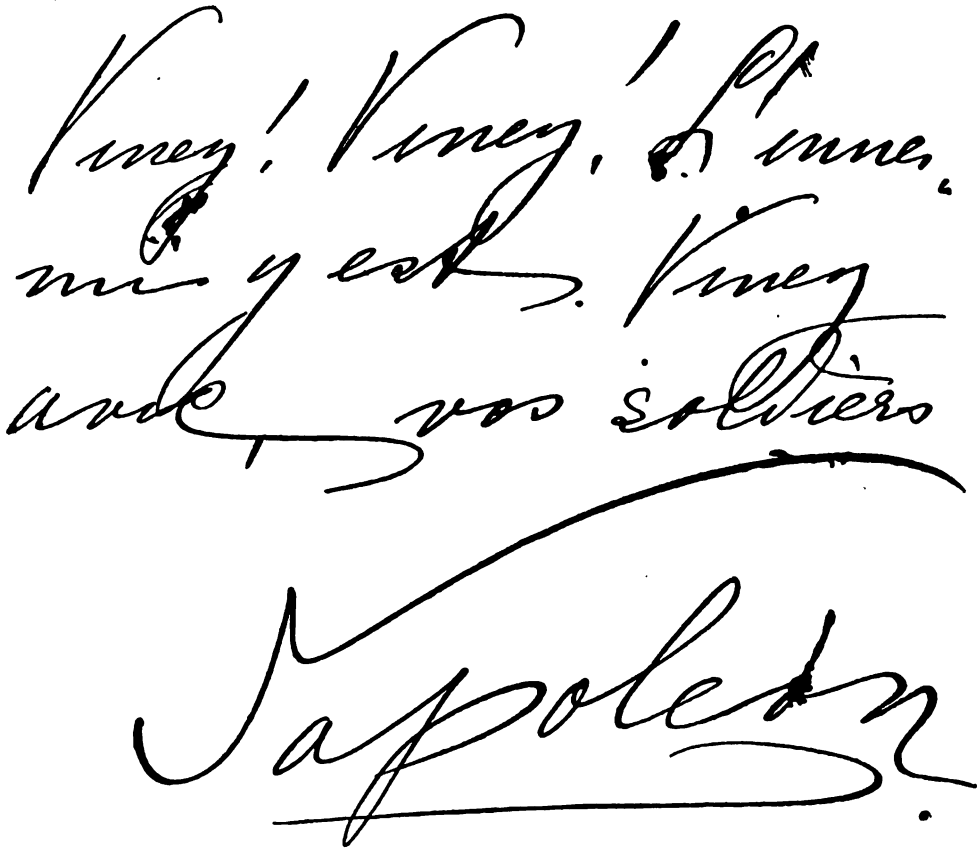 Viney! Viney! L'inne,
mi y est. Viney
avec vos soldièrs
Napoleón.